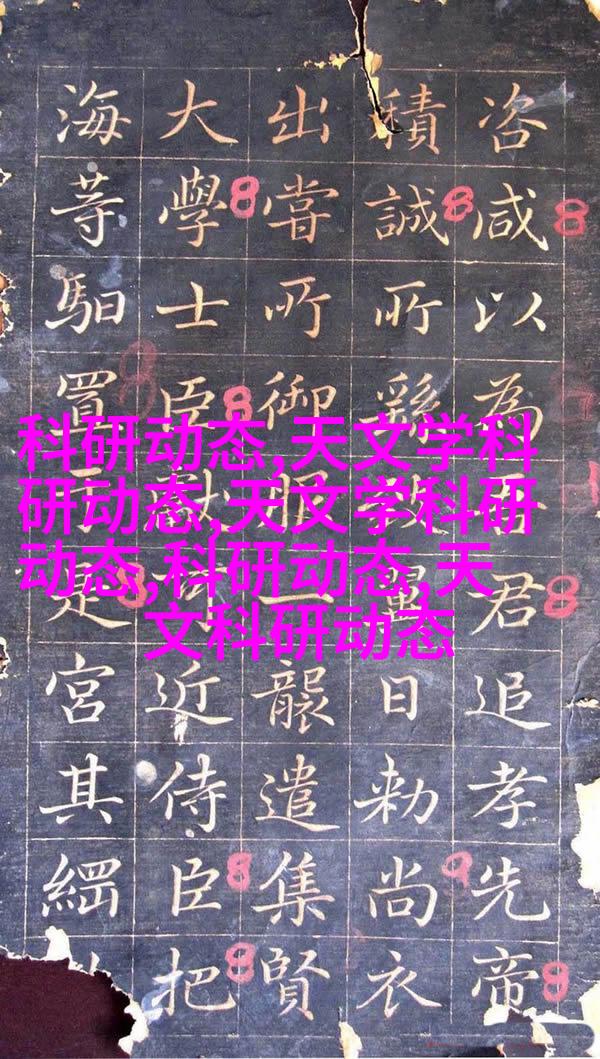 咨咸以為君追孝先帝
積誠所繇致日勅尚衣
出嘗所御服一襲遣集賢
大學士臣近侍臣把
海等馹置于是宮其
科研动态,天文学科
研动态,天文学科研
动态,科研动态,天
文科研动态